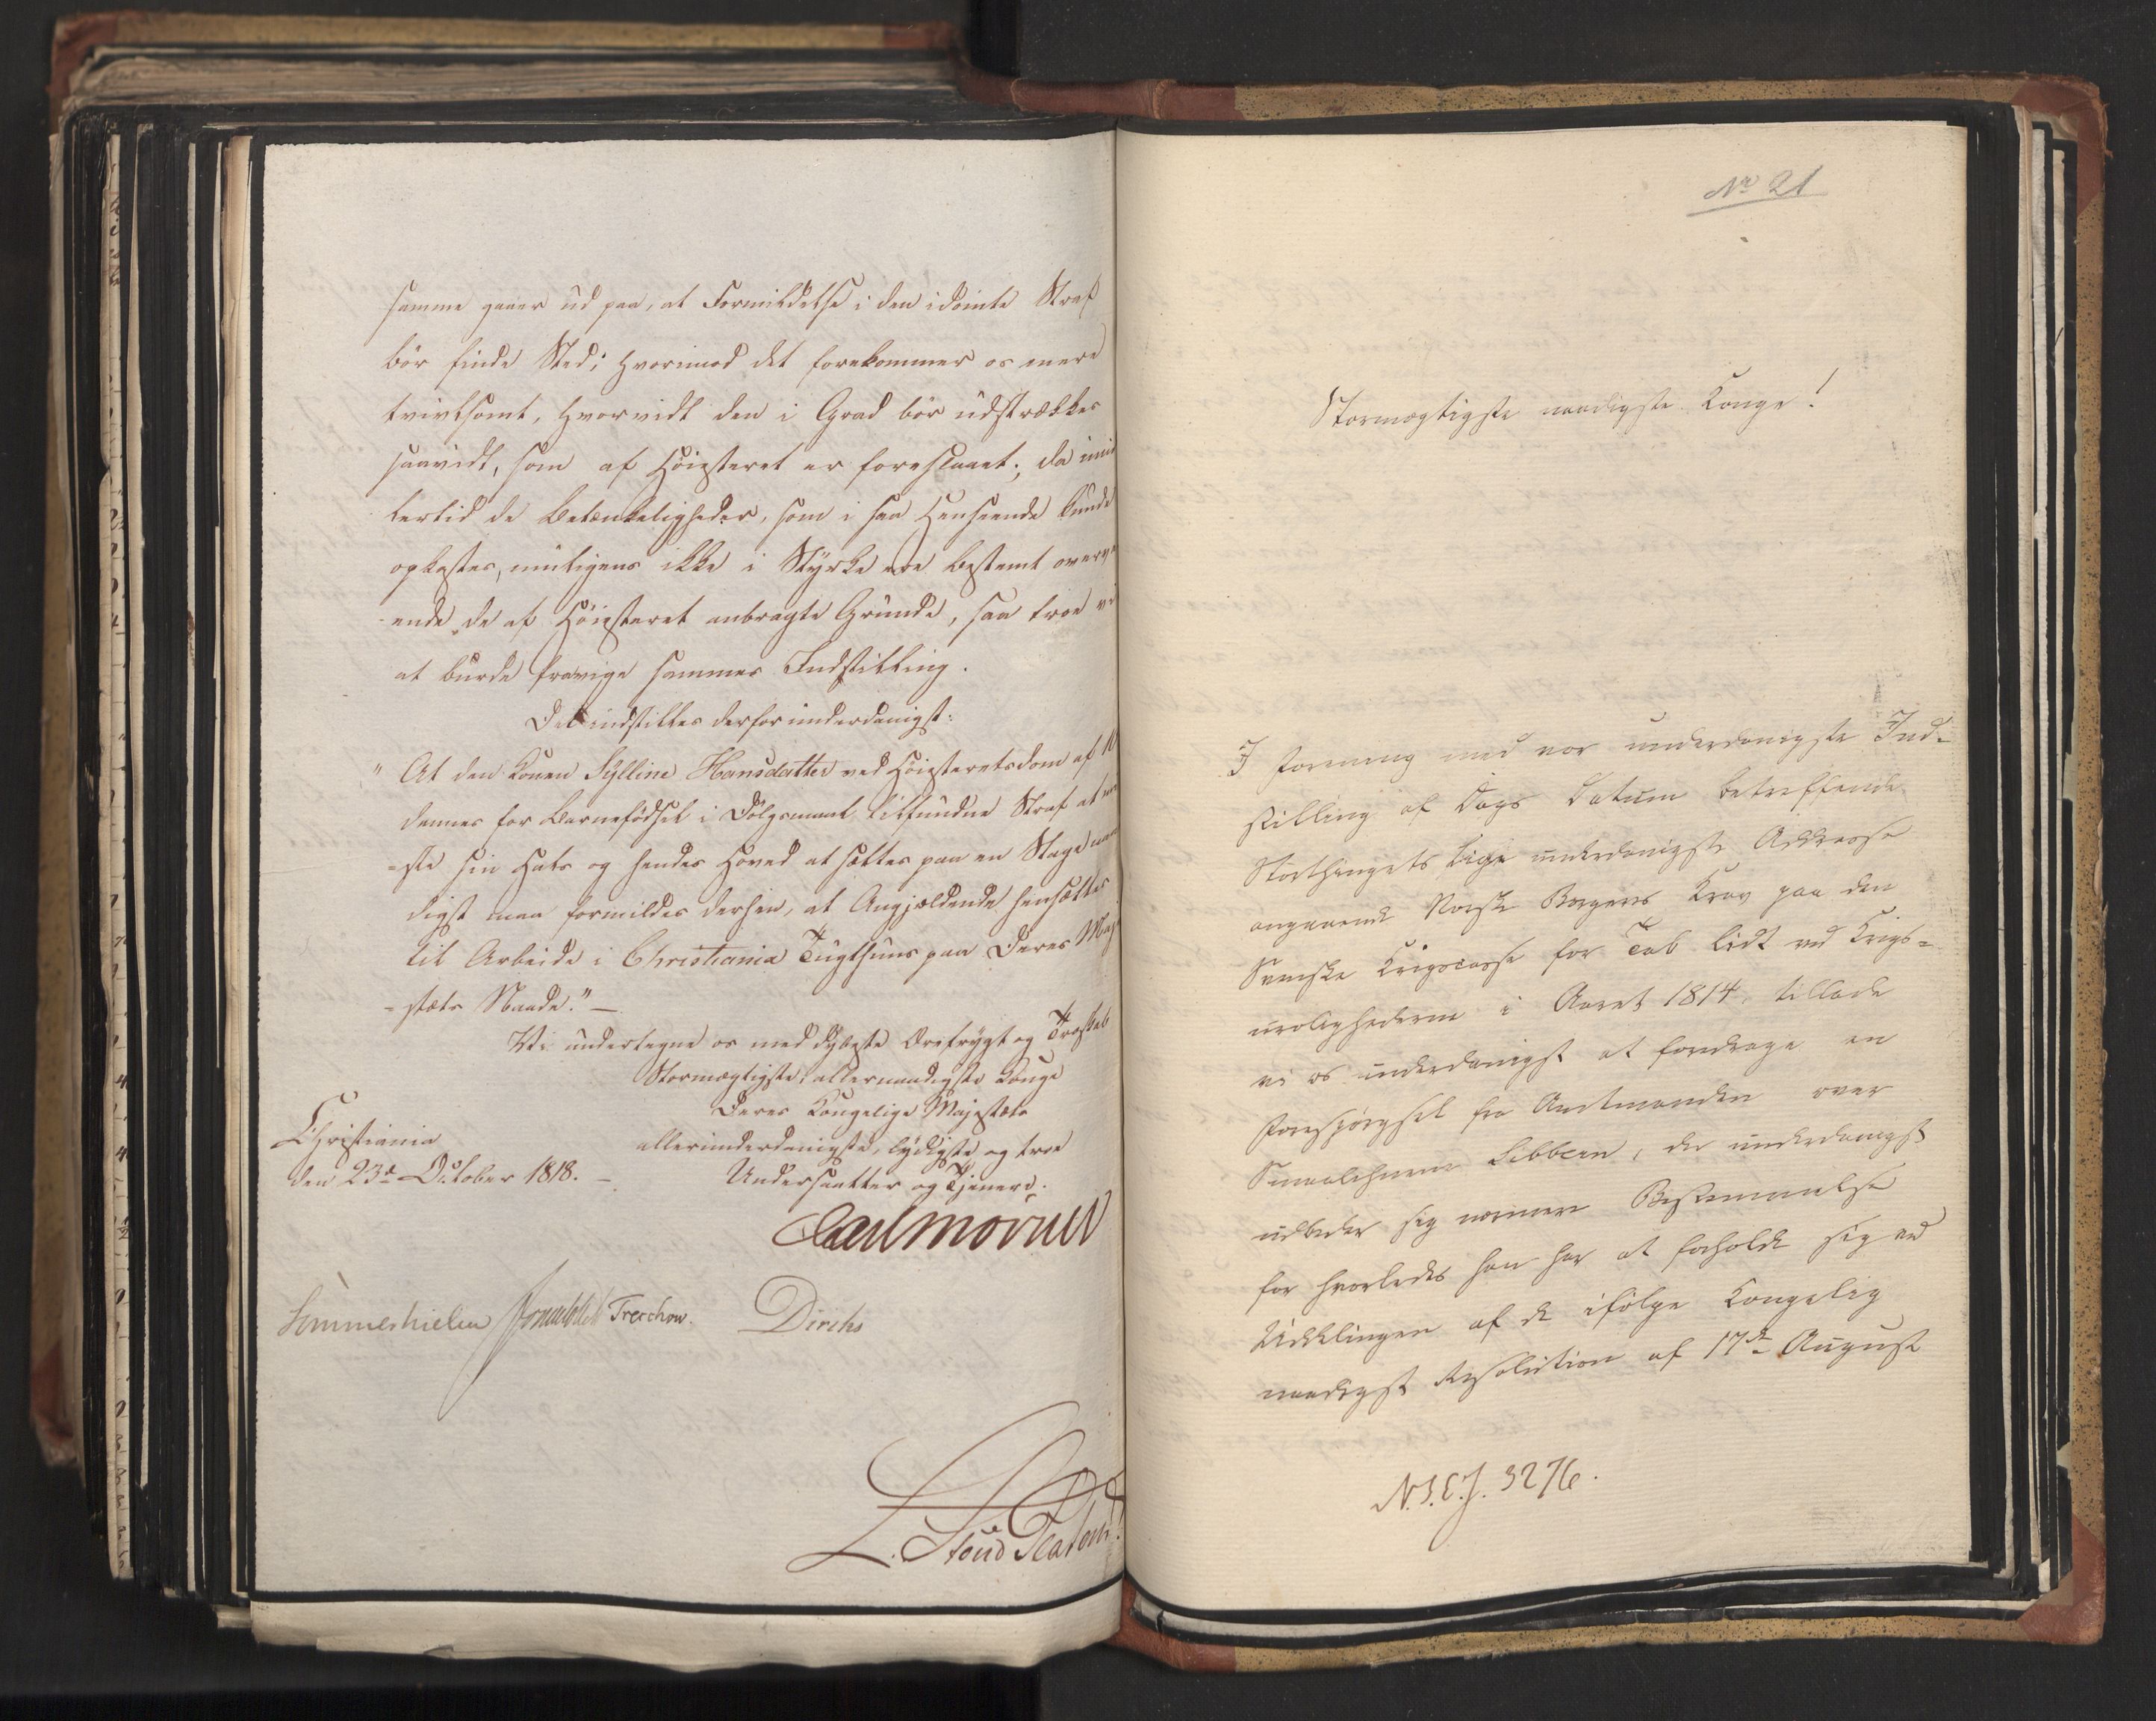 samme gaaer ud paa, at Formildelse i den idømte Straf
bör finde Sted; hvorimod det forekommer os mere
tvivlsomt, hvorvidt den i Grad bör udstrækkes
saavidt, som af Höiesteret er foreslaaet; da imid
lertid de Betænkeligheder, som i saa Henseende kunde
opkastes, muligens ikke i Styrke ere bestemt overve
ende de af Höiesteret anbragte Grunde, saa troe vi
at burde fravige sammes Indstilling.
Det indstilles derfor underdanigst:
" At den Konen Sylline Hansdatter ved Höiesteretsdom af
dennes for Barnefödsel i Dölgsmaal tilfundne Straf at
=ste sin Hals og hendes Hoved at sættes paa en Stage naa
digst maa formildes derhen, at Angjældende hensættes
til Arbeide i Christiania Tugthuus paa Deres Maj
=stæts Naade." —
Vi undertegne os med dybeste Ærefrygt og Troskab
Stormægtigste, allernaadigste Konge
Deres Kongelige Majestæts
Christiania allerunderdanigste, lydigste og troe
den 23de October 1818. — Undersaatter og Tjenere.
Carl Mörner
Sommerhielm Treschow. Diriks
L. Stoud Platou
No 21
Stormægtigste naadigste Konge!
I Forening med vor underdanigste Ind-
stilling af Dags Datum betreffende
Storthingets lige underdanigste Addresse
angaaende Norske Borgeres Krav paa den
Svenske Krigscasse for Tab lidt ved Krigs=
urolighederne i Aaret 1814, tillade
vi os underdanigst at foredrage en
Forespörgsel fra Amtmanden over
Smaalehnene Sibbern, der underdanigst
udbeder sig nærmere Bestemmelse
for hvorledes han har at forholde sig ved
Uddelingen af de ifölge Kongelig
naadigst Resolution af 17de August
N.I.C.J. 3276.